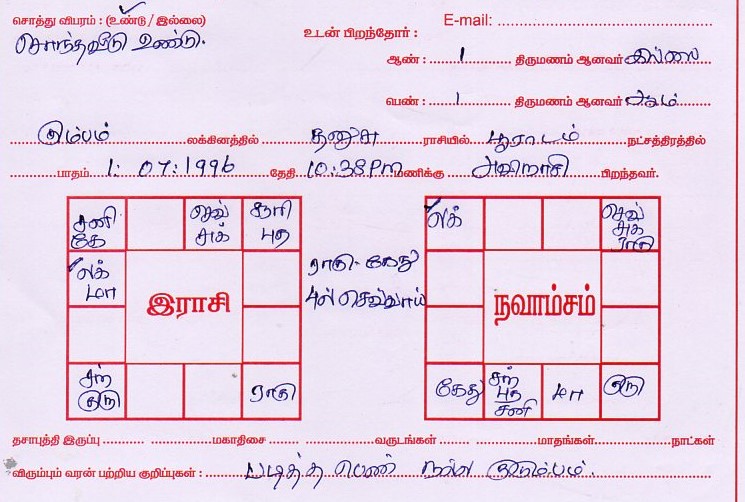 சொத்து விபரம் : (உண்டு / இல்லை)
சொந்தவீடு உண்டு.
E-mail:
உடன் பிறந்தோர் :
ஆண் : 1 திருமணம் ஆனவர் இல்லை
பெண் : 1 திருமணம் ஆனவர் ஆகும்
கும்பம் லக்கினத்தில் தனுசு ராசியில் பூராடம் நட்சத்திரத்தில்
பாதம் 1 : 07 : 1996 தேதி 10:38 Pm மணிக்கு அவிநாசி பிறந்தவர்.
சனி கே
செவ் சுக்
சூரி புத
லக் மா
இராசி
சந் குரு
ராகு
ராகு - கேது
4ல் செவ்வாய்
லக்
செவ் சுக் ராகு
நவாம்சம்
கேது
சந் புத சனி
மா
குரு
தசாபுத்தி இருப்பு மகாதிசை வருடங்கள் மாதங்கள் நாட்கள்
விரும்பும் வரன் பற்றிய குறிப்புகள் : படித்த பெண் நல்ல குடும்பம்.